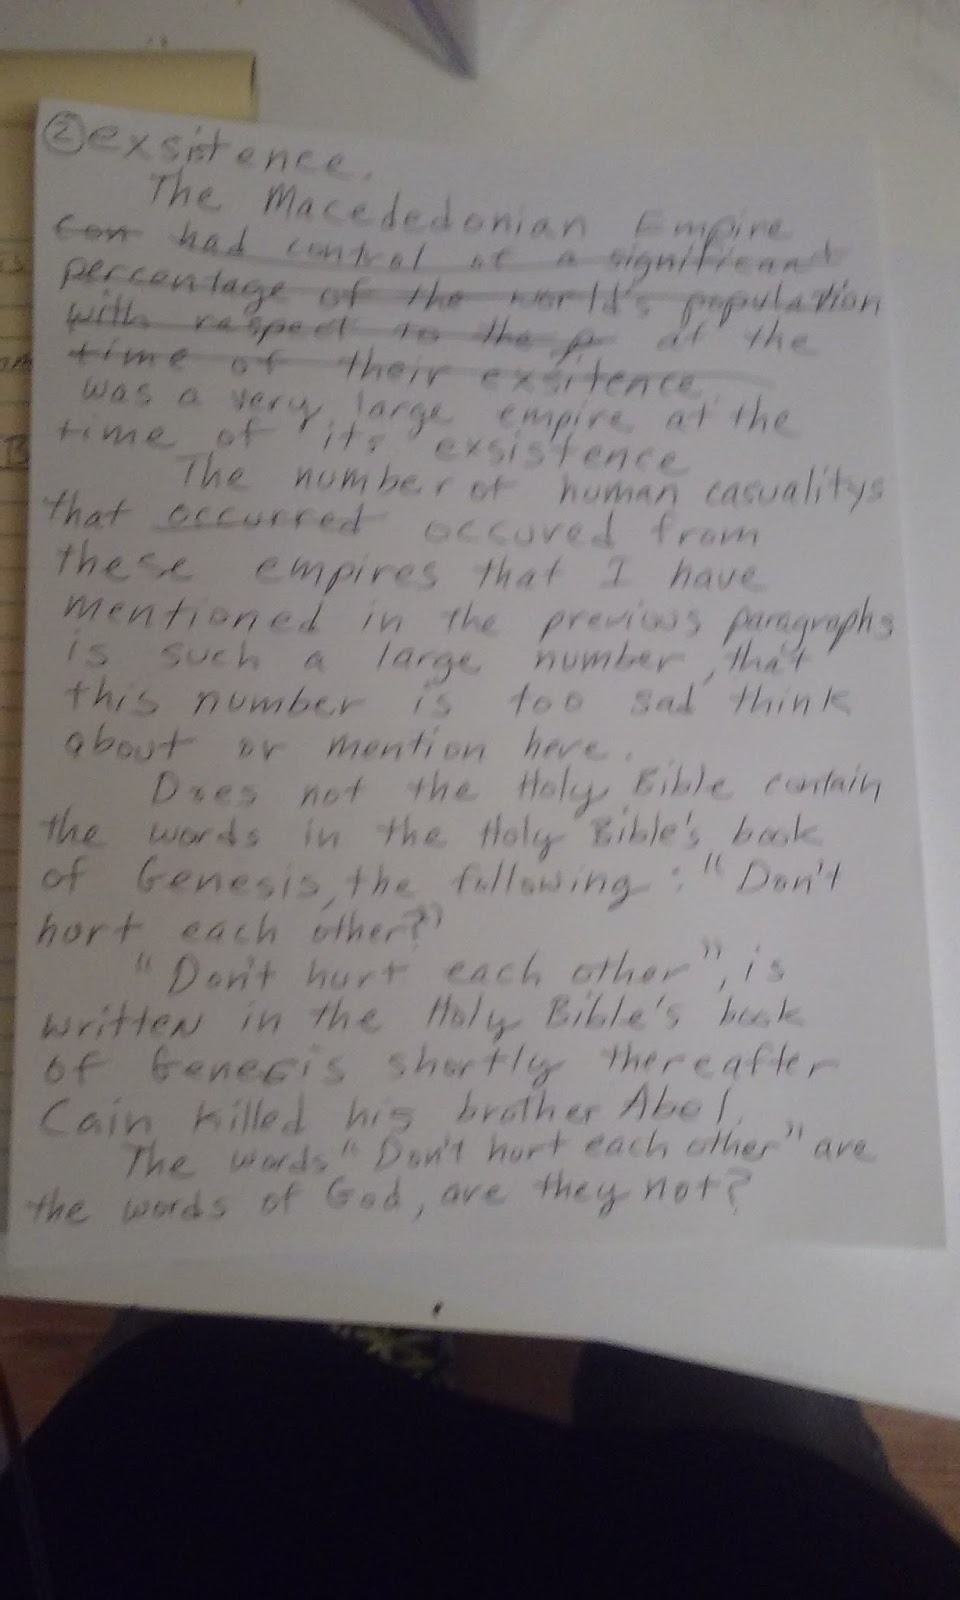 ② exsistence.
The Macededonian Empire
Con had control of a significant
percentage of the world's population
with respect to the p at the
time of their exsitence
was a very large empire at the
time of its exsistence
The number of human casualitys
that occurred occured from
these empires that I have
mentioned in the previous paragraphs
is such a large number, that
this number is too sad think
about or mention here.
Does not the Holy Bible contain
the words in the Holy Bible's book
of Genesis, the following: "Don't
hurt each other?"
"Don't hurt each other", is
written in the Holy Bible's book
of Genesis shortly thereafter
Cain killed his brother Abel.
The words "Don't hurt each other" are
the words of God, are they not?